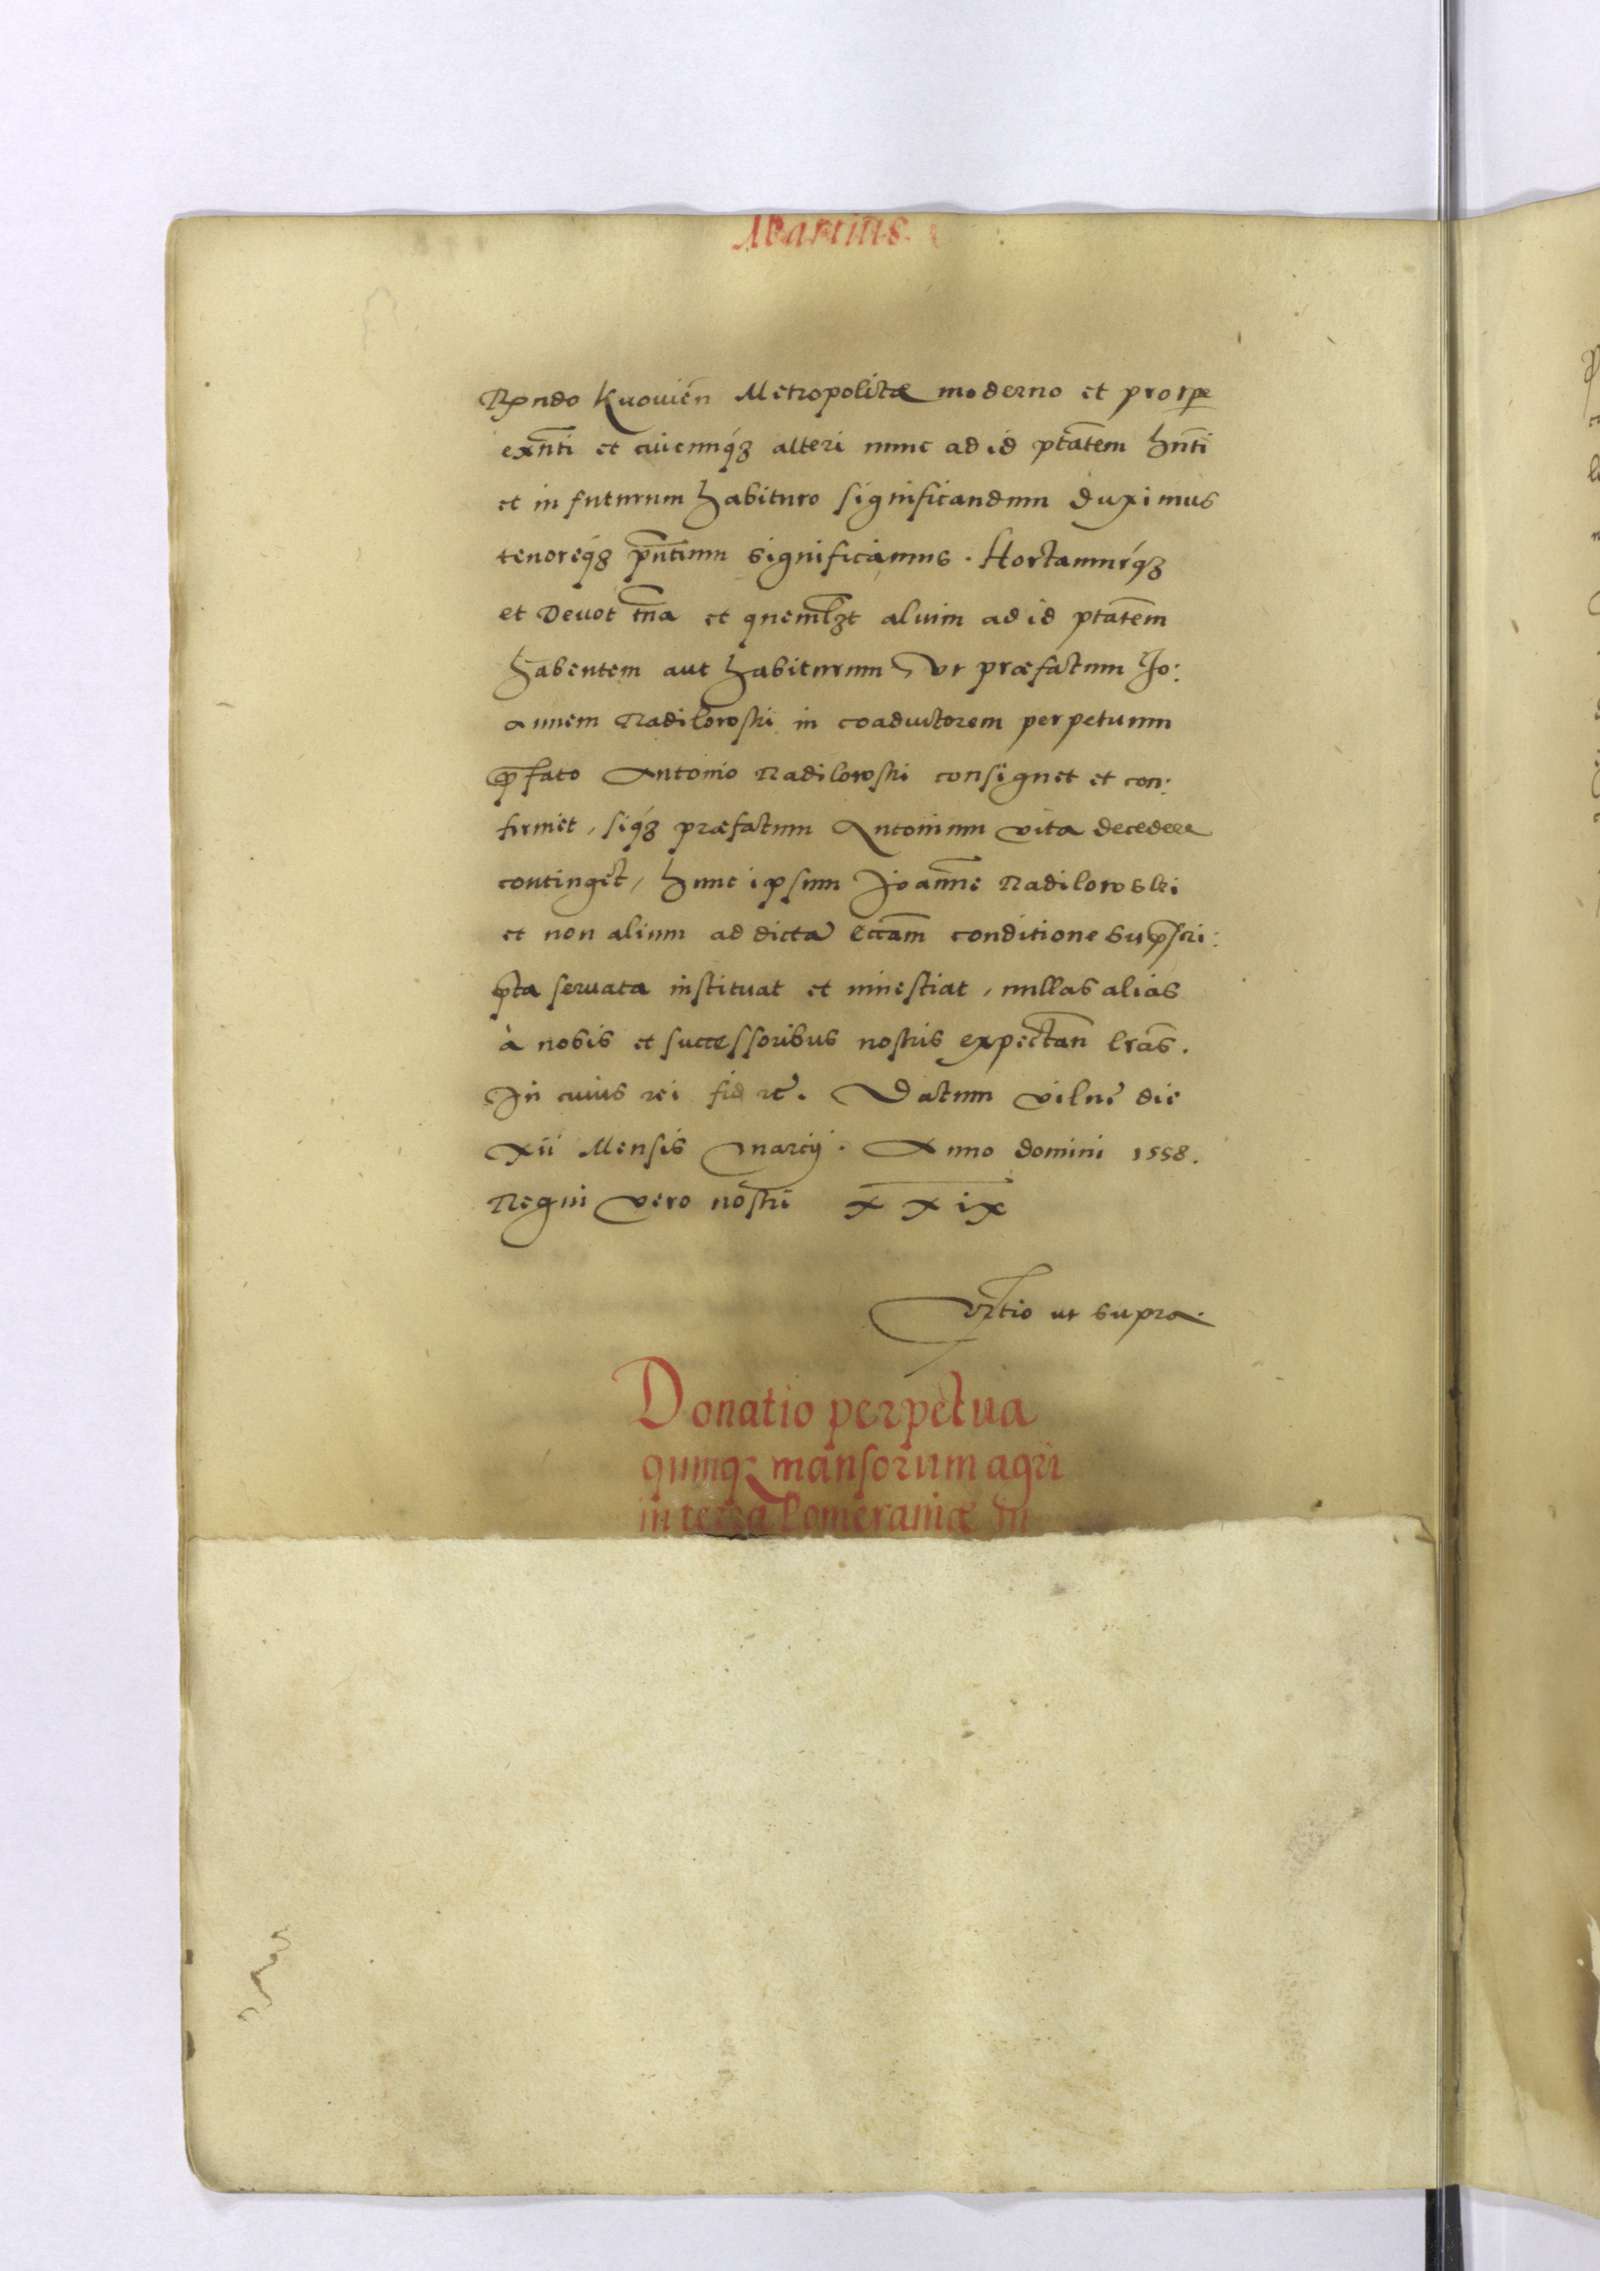 Martius.
Rndo Kuouien Metropolitae moderno et pro tpe
exnti et cuicunqz alteri nunc ad id ptatem hnti
et in futurum habituro significandum duximus
tenoreqz pntium significamus. Hortamurqz
et Devot tna et quemlzt alium ad id ptatem
habentem aut habiturum, ut praefatum Jo:
annem Radilowski in coadiutorem perpetuum
pfato Antonio Radilowski consignet et con:
firmet, siqz praefatum Antonium vita decedere
continget, hunc ipsum Joanne Radilowski
et non alium ad dicta eccam conditione supscri:
pta servata instituat et investiat, nullas alias
à nobis et successoribus nostris expectan lras.
In cuius rei fid rc. Datum Vilne die
xii Mensis Marcij. Anno domini 1558.
Regni vero nostri xxix
Rtio ut supra.
Donatio perpetua
quinqz mansorum agri
in terra Pomeraniae in